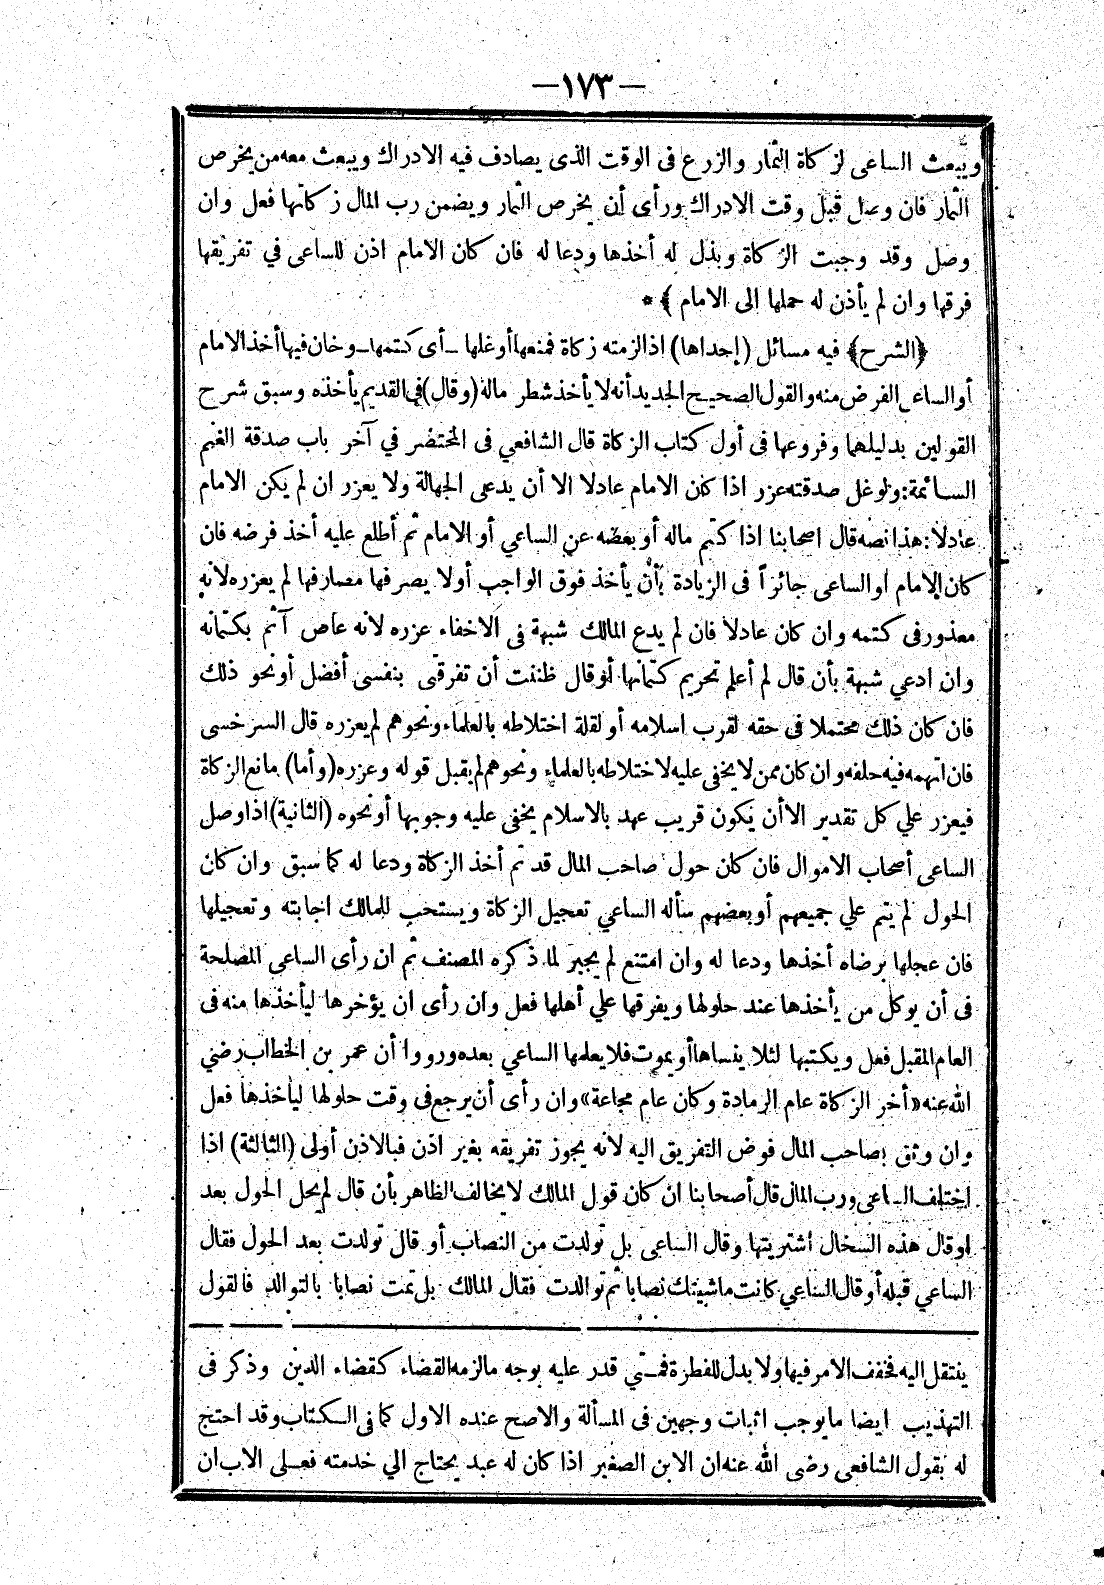 —١٧٣—
ويبعث الساعى لزكاة الثمار والزرع فى الوقت الذى يصادف فيه الادراك ويبعث معه من يخرص
الثمار فان وصل قبل وقت الادراك ورأى أن يخرص الثمار ويضمن رب المال زكاتها فعل وان
وصل وقد وجبت الزكاة وبذل له أخذها ودعا له فان كان الامام اذن للساعى في تفريقها
فرقها وان لم يأذن له حملها الى الامام ﴾ *
﴿الشرح﴾ فيه مسائل (إحداها) اذا لزمته زكاة فمنعها أوغلها ــ أى كتمها ــ وخان فيها أخذ الامام
أو الساعى الفرض منه والقول الصحيح الجديد أنه لا يأخذ شطر ماله (وقال) فى القديم يأخذه وسبق شرح
القولين بدليلهما وفروعها فى أول كتاب الزكاة قال الشافعي فى المختصر في آخر باب صدقة الغنم
السائمة: ولو غل صدقته عزر اذا كان الامام عادلا الا أن يدعى الجهالة ولا يعزر ان لم يكن الامام
عادلا: هذا نصه قال اصحابنا اذا كتم ماله أو بعضه عن الساعي أو الامام ثم أطلع عليه أخذ فرضه فان
كان الامام او الساعى جائزاً فى الزيادة بأن يأخذ فوق الواجب أولا يصرفها مصارفها لم يعزره لانه
معذور فى كتمه وان كان عادلا فان لم يدع المالك شبهة فى الاخفاء عزره لانه عاص آثم بكتمانه
وان ادعي شبهة بأن قال لم أعلم تحريم كتمانها أو قال ظننت أن تفرقتى بنفسى أفضل أو نحو ذلك
فان كان ذلك محتملا فى حقه لقرب اسلامه أو لقلة اختلاطه بالعلماء ونحوهم لم يعزره قال السرخسى
فان اتهمه فيه حلفه وان كان ممن لا يخفى عليه لاختلاطه بالعلماء ونحوهم لم يقبل قوله وعزره (وأما) مانع الزكاة
فيعزر علي كل تقدير الا أن يكون قريب عهد بالاسلام يخفى عليه وجوبها أو نحوه (الثانية) اذا وصل
الساعى أصحاب الاموال فان كان حول صاحب المال قد تم أخذ الزكاة ودعا له كما سبق وان كان
الحول لم يتم علي جميعهم أو بعضهم سأله الساعي تعجيل الزكاة ويستحب للمالك اجابته وتعجيلها
فان عجلها برضاه أخذها ودعا له وان امتنع لم يجبر لما ذكره المصنف ثم ان رأى الساعى المصلحة
فى أن يوكل من يأخذها عند حلولها ويفرقها علي أهلها فعل وان رأى ان يؤخرها ليأخذها منه فى
العام المقبل فعل ويكتبها لئلا ينساها أو يموت فلا يعلمها الساعي بعده ورووا أن عمر بن الخطاب رضي
الله عنه «أخر الزكاة عام الرمادة وكان عام مجاعة» وان رأى أن يرجع فى وقت حلولها ليأخذها فعل
وان وثق بصاحب المال فوض التفريق اليه لانه يجوز تفريقه بغير اذن فبالاذن أولى (الثالثة) اذا
اختلف الساعى ورب المال قال أصحابنا ان كان قول المالك لا يخالف الظاهر بأن قال لم يحل الحول بعد
او قال هذه السخال اشتريتها وقال الساعى بل تولدت من النصاب أو قال تولدت بعد الحول فقال
الساعي قبله أو قال الساعي كانت ماشيتك نصابا ثم توالدت فقال المالك بل تمت نصابا بالتوالد فالقول
ينتقل اليه فخفف الامر فيها ولا بدل للفطرة فمتي قدر عليه بوجه ما لزمه القضاء كقضاء الدين وذكر فى
التهذيب ايضا ما يوجب اثبات وجهين فى المسألة والاصح عنده الاول كما فى الكتاب وقد احتج
له بقول الشافعى رضى الله عنه ان الابن الصغير اذا كان له عبد يحتاج الي خدمته فعلى الاب ان